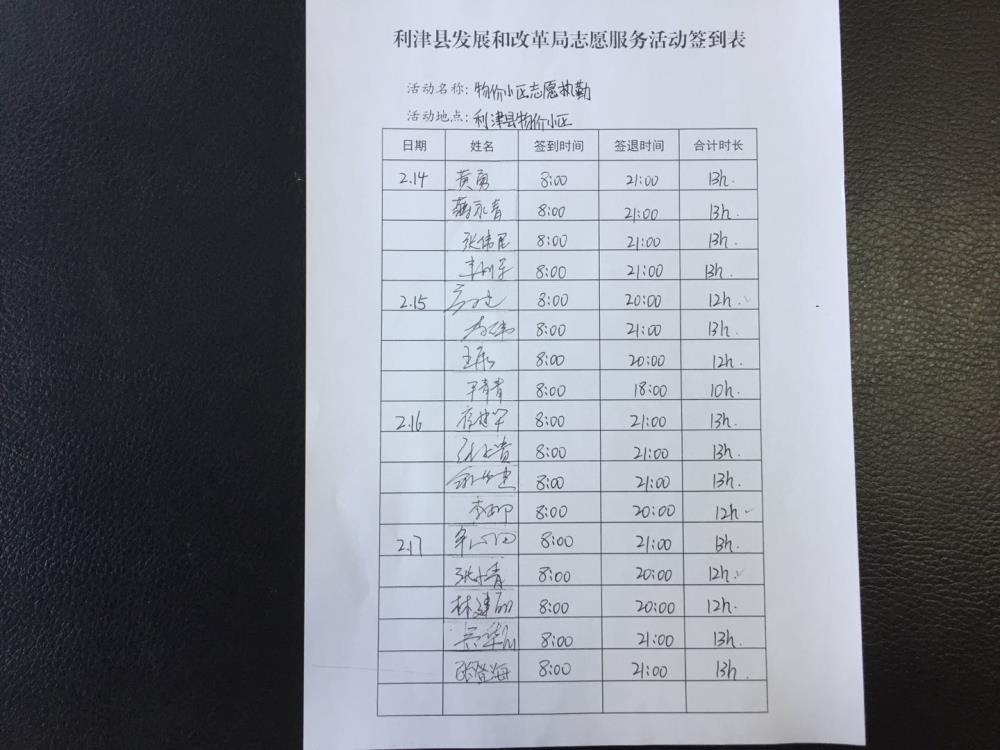 利津县发展和改革局志愿服务活动签到表
活动名称：物价小区志愿执勤
活动地点：利津县物价小区
日期 姓名 签到时间 签退时间 合计时长
2.14 黄勇 8:00 21:00 13h.
永青 8:00 21:00 13h.
张伟民 8:00 21:00 13h.
8:00 21:00 13h.
2.15 8:00 20:00 12h.
8:00 21:00 13h.
8:00 20:00 12h.
青青 8:00 18:00 10h.
2.16 8:00 21:00 13h.
8:00 21:00 13h.
8:00 21:00 13h.
8:00 20:00 12h
2.17 8:00 21:00 13h.
8:00 20:00 12h.
林建 8:00 20:00 12h.
8:00 21:00 13h.
张登海 8:00 21:00 13h.